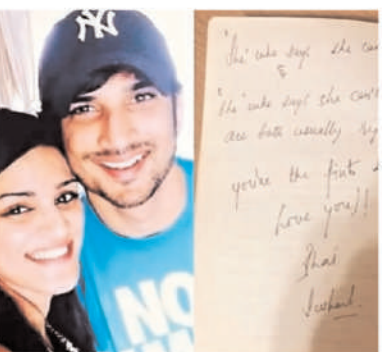 NY
NO
"the' who says she can
&
"the' who says she can't
are both usually rig
you're the first
Love you!!
Bhai
Sushant.